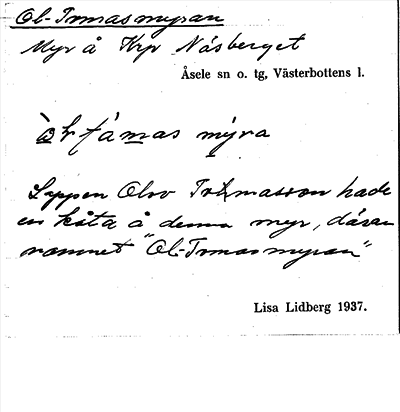 Ol-Tomasmyran
Myr å Krp Näsberget
Åsele sn o. tg, Västerbottens l.
myra
Lappen Olov Tomasson hade
en kåta å denna myr, däran
namnet "Ol-Tomasmyran"
Lisa Lidberg 1937.